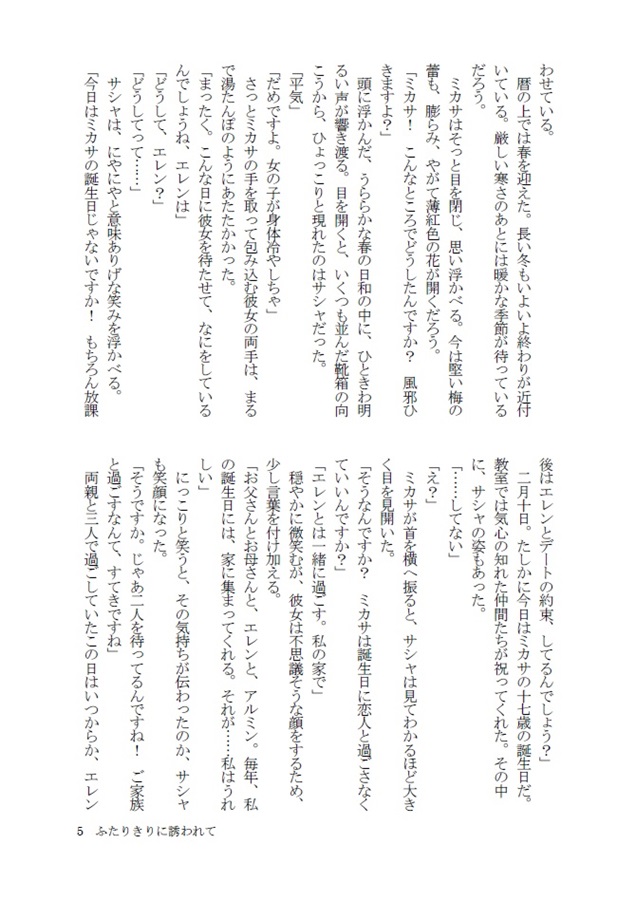 わせている。
　暦の上では春を迎えた。長い冬もいよいよ終わりが近付
いている。厳しい寒さのあとには暖かな季節が待っている
だろう。
　ミカサはそっと目を閉じ、思い浮かべる。今は堅い梅の
蕾も、膨らみ、やがて薄紅色の花が開くだろう。
「ミカサ！　こんなところでどうしたんですか？　風邪ひ
きますよ？」
　頭に浮かんだ、うららかな春の日和の中に、ひときわ明
るい声が響き渡る。目を開くと、いくつも並んだ靴箱の向
こうから、ひょっこりと現れたのはサシャだった。
「平気」
「だめですよ。女の子が身体冷やしちゃ」
　さっとミカサの手を取って包み込む彼女の両手は、まる
で湯たんぽのようにあたたかかった。
「まったく。こんな日に彼女を待たせて、なにをしている
んでしょうね、エレンは」
「どうして、エレン？」
「どうしてって……」
　サシャは、にやにやと意味ありげな笑みを浮かべる。
「今日はミカサの誕生日じゃないですか！　もちろん放課
後はエレンとデートの約束、してるんでしょう？」
　二月十日。たしかに今日はミカサの十七歳の誕生日だ。
教室では気心の知れた仲間たちが祝ってくれた。その中
に、サシャの姿もあった。
「……してない」
「え？」
　ミカサが首を横へ振ると、サシャは見てわかるほど大き
く目を見開いた。
「そうなんですか？　ミカサは誕生日に恋人と過ごさなく
ていいんですか？」
「エレンとは一緒に過ごす。私の家で」
　穏やかに微笑むが、彼女は不思議そうな顔をするため、
少し言葉を付け加える。
「お父さんとお母さんと、エレンと、アルミン。毎年、私
の誕生日には、家に集まってくれる。それが……私はうれ
しい」
　にっこりと笑うと、その気持ちが伝わったのか、サシャ
も笑顔になった。
「そうですか。じゃあ二人を待ってるんですね！　ご家族
と過ごすなんて、すてきですね」
　両親と三人で過ごしていたこの日はいつからか、エレン
5　ふたりきりに誘われて